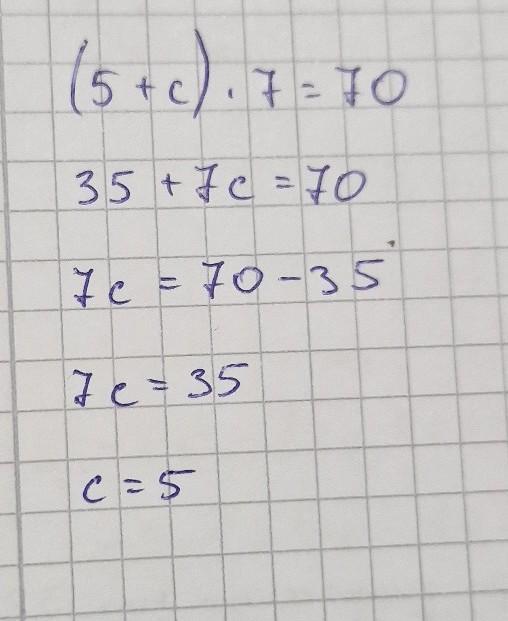 (5 + c) · 7 = 70
35 + 7c = 70
7c = 70 - 35
7c = 35
c = 5